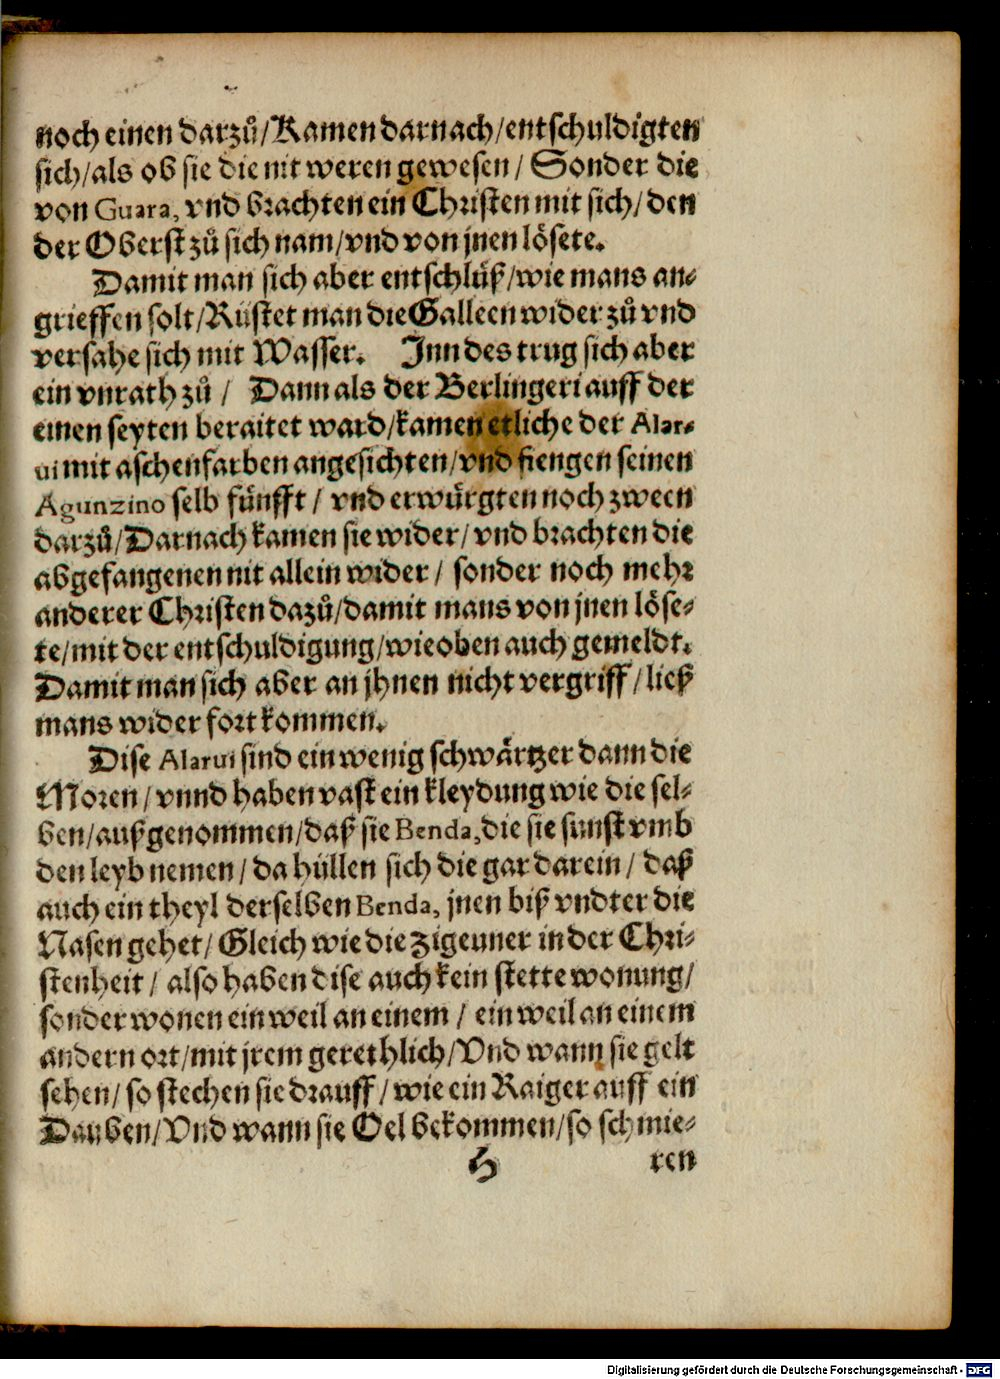 noch einen darzů/Kamen darnach/entschuldigten
sich/als ob sie die nit weren gewesen/ Sonder die
von Guara, vnd brachten ein Christen mit sich/ den
der Oberst zů sich nam/vnd von jnen lösete.
Damit man sich aber entschlüß/wie mans an-
grieffen solt/Rüstet man die Galleen wider zů vnd
versahe sich mit Wasser. Inn des trug sich aber
ein vnrath zů / Dann als der Berlingeri auff der
einen seyten beraitet ward/kamen etliche der Alar-
ui mit aschenfarben angesichten/vnd fiengen seinen
Agunzino selb fünfft / vnd erwürgten noch zween
darzů/Darnach kamen sie wider/vnd brachten die
abgefangenen nit allein wider/ sonder noch mehr
anderer Christen dazů/damit mans von jnen löse-
te/mit der entschuldigung/wie oben auch gemeldt.
Damit man sich aber an jhnen nicht vergriff/ließ
mans wider fort kommen.
Dise Alarui sind ein wenig schwärtzer dann die
Moren/vnnd haben vast ein kleydung wie die sel-
ben/außgenommen/daß sie Benda, die sie sunst vmb
den leyb nemen/da hüllen sich die gar darein/ daß
auch ein theyl derselben Benda, jnen biß vndter die
Nasen gehet/ Gleich wie die Zigeuner in der Chri-
stenheit/ also haben dise auch kein stette wonung/
sonder wonen ein weil an einem / ein weil an einem
andern ort/mit jrem gerethlich/Vnd wann sie gelt
sehen/so stechen sie drauff/wie ein Raiger auff ein
Dauben/Vnd wann sie Oel bekommen/so schmie-
H ren
Digitalisierung gefördert durch die Deutsche Forschungsgemeinschaft - DFG